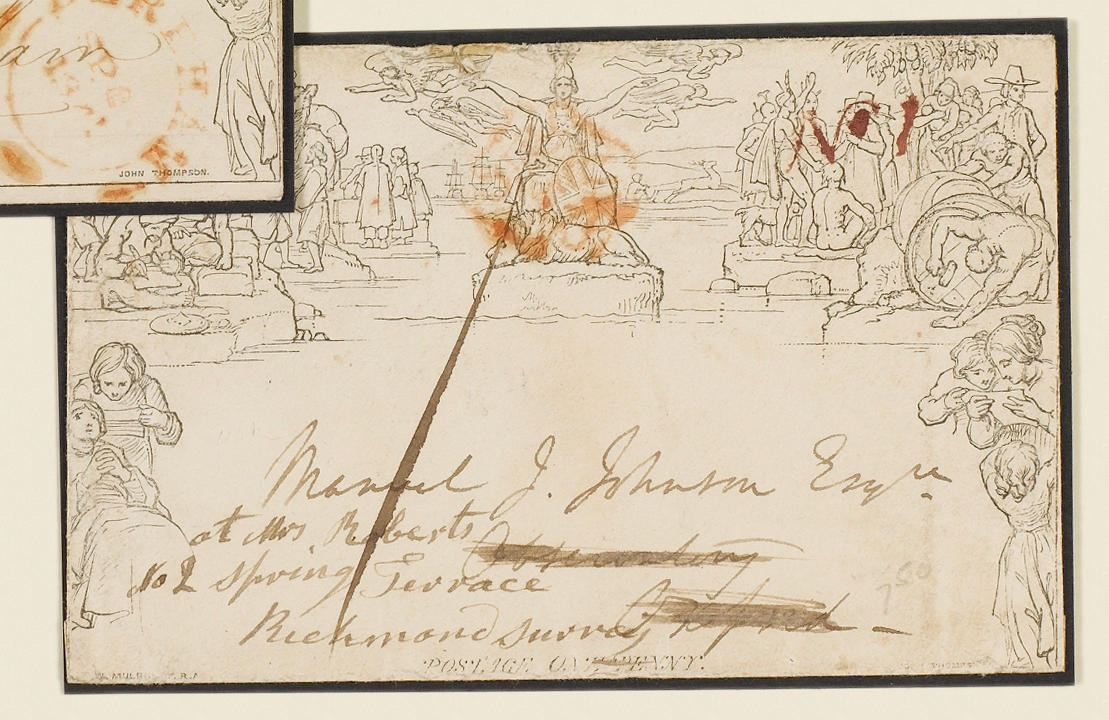 JOHN THOMPSON.
Manuel J. Johnson Esqre
at Mrs. Roberts Observatory
No 2 Spring Terrace
Richmond Surrey Oxford
POSTAGE ONE PENNY.
W. MULREADY. R.A
JOHN THOMPSON